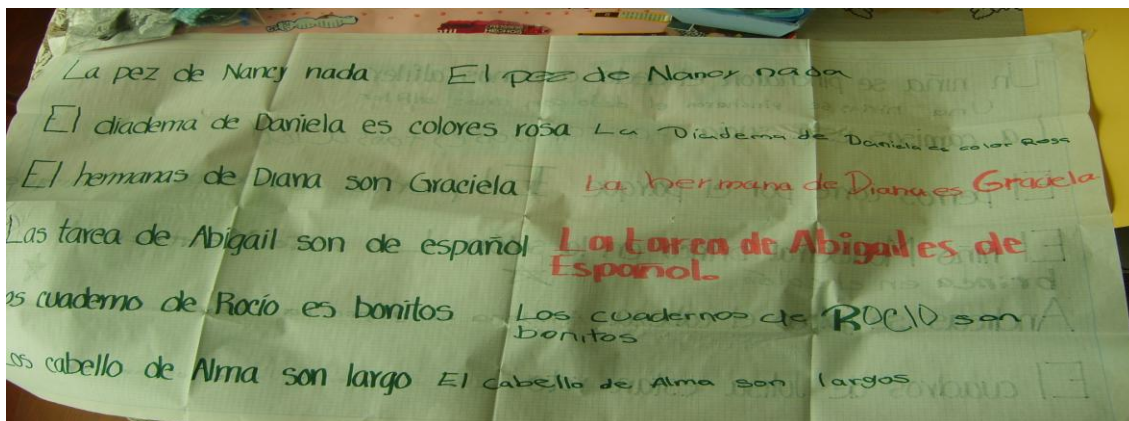 La pez de Nancy nada El pez de Nancy nada
El diadema de Daniela es colores rosa La Diadema de Daniela es color Rosa
El hermanas de Diana son Graciela La hermana de Diana es Graciela
Las tarea de Abigail son de español La tarea de Abigail es de
Español.
os cuaderno de Rocío es bonitos Los cuadernos de ROCIO son
bonitos
os cabello de Alma son largo El cabello de Alma son largos